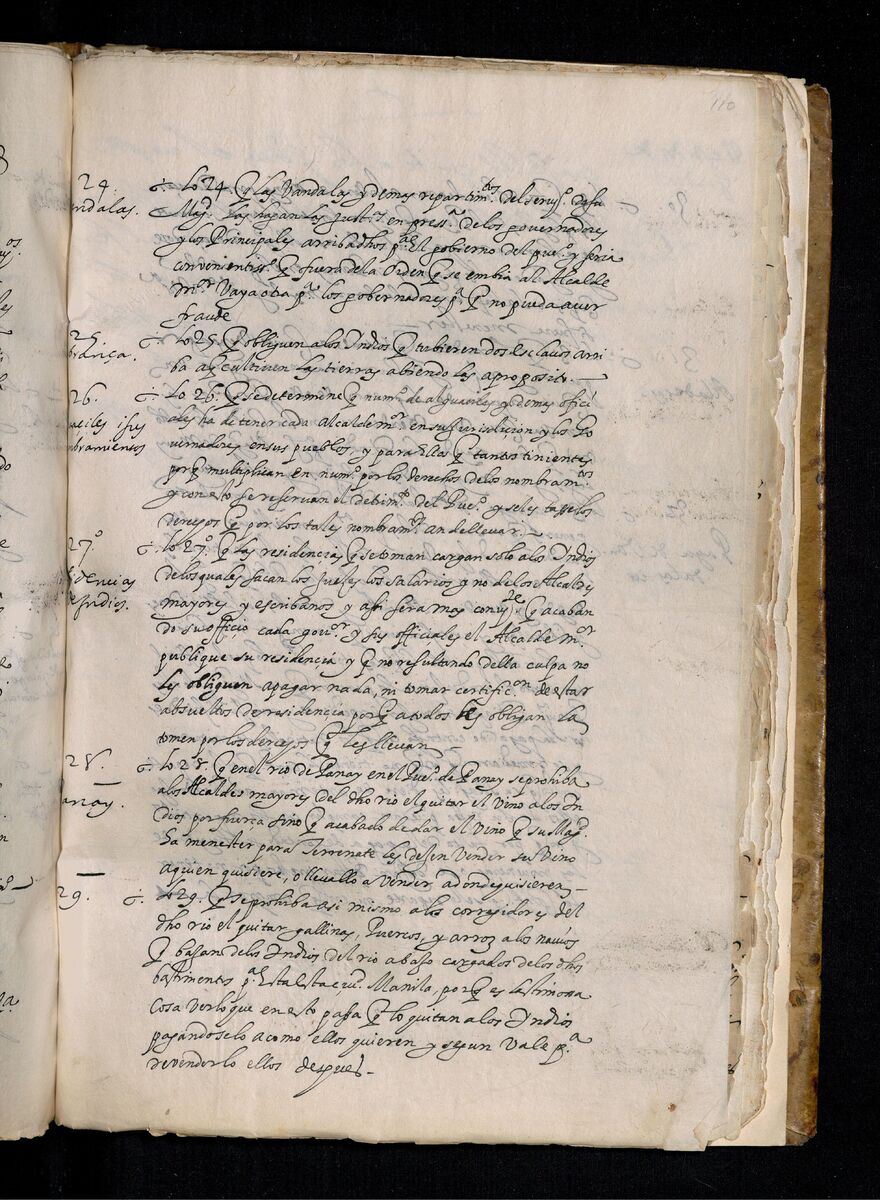 110
24.
ndalas.
Lo 24 q̃ las Vandalas y demas repartimtos del seruiço de su
Magd. las hagan las justas en pressa de los governadores
y los Principales arriba dhos pa El gobierno del pueo. y seria
convenientisso q̃ fuera de la orden q̃ se embia al Alcalde
mor Vaya otra pa. los gobernadores pa q̃ no pueda aver
fraude
25.
brança.
Lo 25. q̃ obliguen a los Indios q̃ tubieren dos esclavos arri
ba a q̃ cultiven las tierras abiendo les a proposito.—
26.
uaciles i sus
mbramientos
Lo 26. q̃ se determine q̃ numo de alguaciles y demas offici
ales ha de tener cada alcalde mor en su jurisdicion y los Go
vernadores en sus pueblos, y para Ellos q̃ tantos tinientes
porq̃ multiplican en numo por los derechos de los nombramtos
y con esto se reservan el detrimto del Pueo. y se les tasse los
derechos q̃ por los tales nombramtos an de llevar.—
27o
sidencias
e Indios.
Lo 27o. q̃ las residencias q̃ se toman cargan solo a los Indios
de los quales sacan los juezes los salarios y no de los Alcaldes
mayores y escribanos y assi sera mas conveente q̃ acaban
do su officio cada govor. y sus officiales el Alcalde mor
publique su residencia y q̃ no resultando della culpa no
les obliguen a pagar nada, ni tomar certificon de estar
absueltos de residencia porq̃ a todos les obligan la
tomen por los derechos q̃ les llevan—
28.
anay.
Lo 28. q̃ en el rio de Panay en el Pueo. de Panay se prohiba
a los Alcaldes mayores del dho rio el quitar el vino a los In
dios por fuerça sino q̃ acabado de dar el vino q̃ su Magd.
ha menester para Terrenate les dexen vender su vino
a quien quisiere, o llevallo a vender adonde quisieren—
29.
Lo 29. q̃ se prohiba asi mismo a los corregidores del
dho rio el quitar gallinas, Puercos, y arroz a los navios
q̃ baxan de los Indios del rio abaxo cargados de los dhos
bastimentos pa Esta Manila, porq̃ es lastimosa
cosa ver lo que en esto passa q̃ lo quitan a los Indios
pagandoselo a como ellos quieren y segun vale pa.
revenderlo ellos despues—